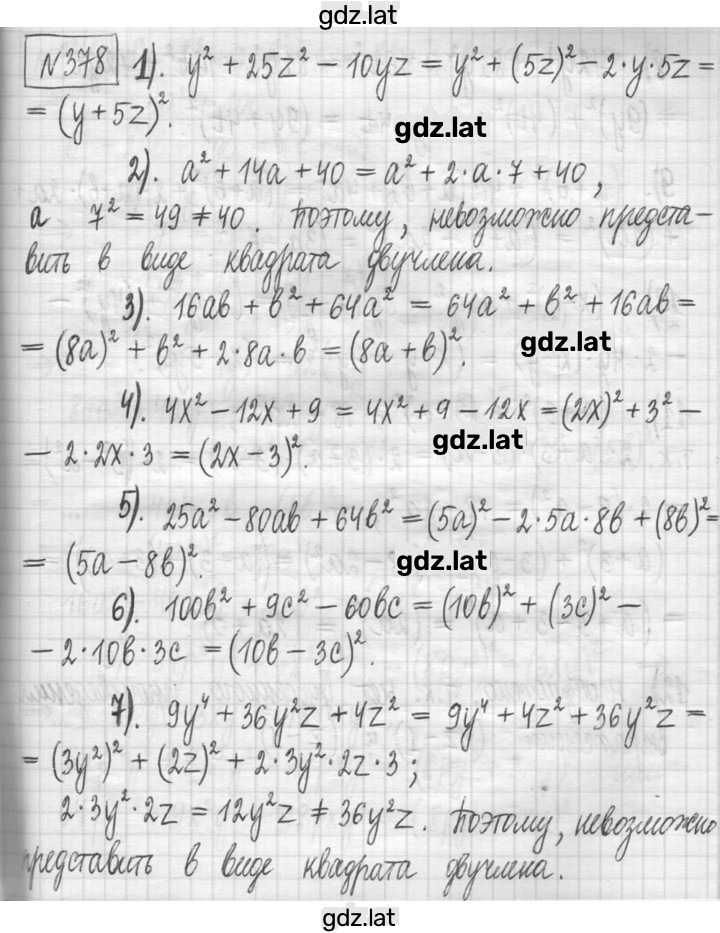 gdz.lat
N378 1). y² + 25z² − 10yz = y² + (5z)² − 2·y·5z =
= (y + 5z)².
gdz.lat
2). a² + 14a + 40 = a² + 2·a·7 + 40,
а 7² = 49 ≠ 40. Поэтому, невозможно предста-
вить в виде квадрата двучлена.
3). 16ab + b² + 64a² = 64a² + b² + 16ab =
= (8a)² + b² + 2·8a·b = (8a + b)².
gdz.lat
4). 4x² − 12x + 9 = 4x² + 9 − 12x = (2x)² + 3² −
− 2·2x·3 = (2x − 3)².
gdz.lat
5). 25a² − 80ab + 64b² = (5a)² − 2·5a·8b + (8b)² =
= (5a − 8b)².
gdz.lat
6). 100b² + 9c² − 60bc = (10b)² + (3c)² −
− 2·10b·3c = (10b − 3c)².
7). 9y⁴ + 36y²z + 4z² = 9y⁴ + 4z² + 36y²z =
= (3y²)² + (2z)² + 2·3y²·2z·3;
2·3y²·2z = 12y²z ≠ 36y²z. Поэтому, невозможно
представить в виде квадрата двучлена.
gdz.lat